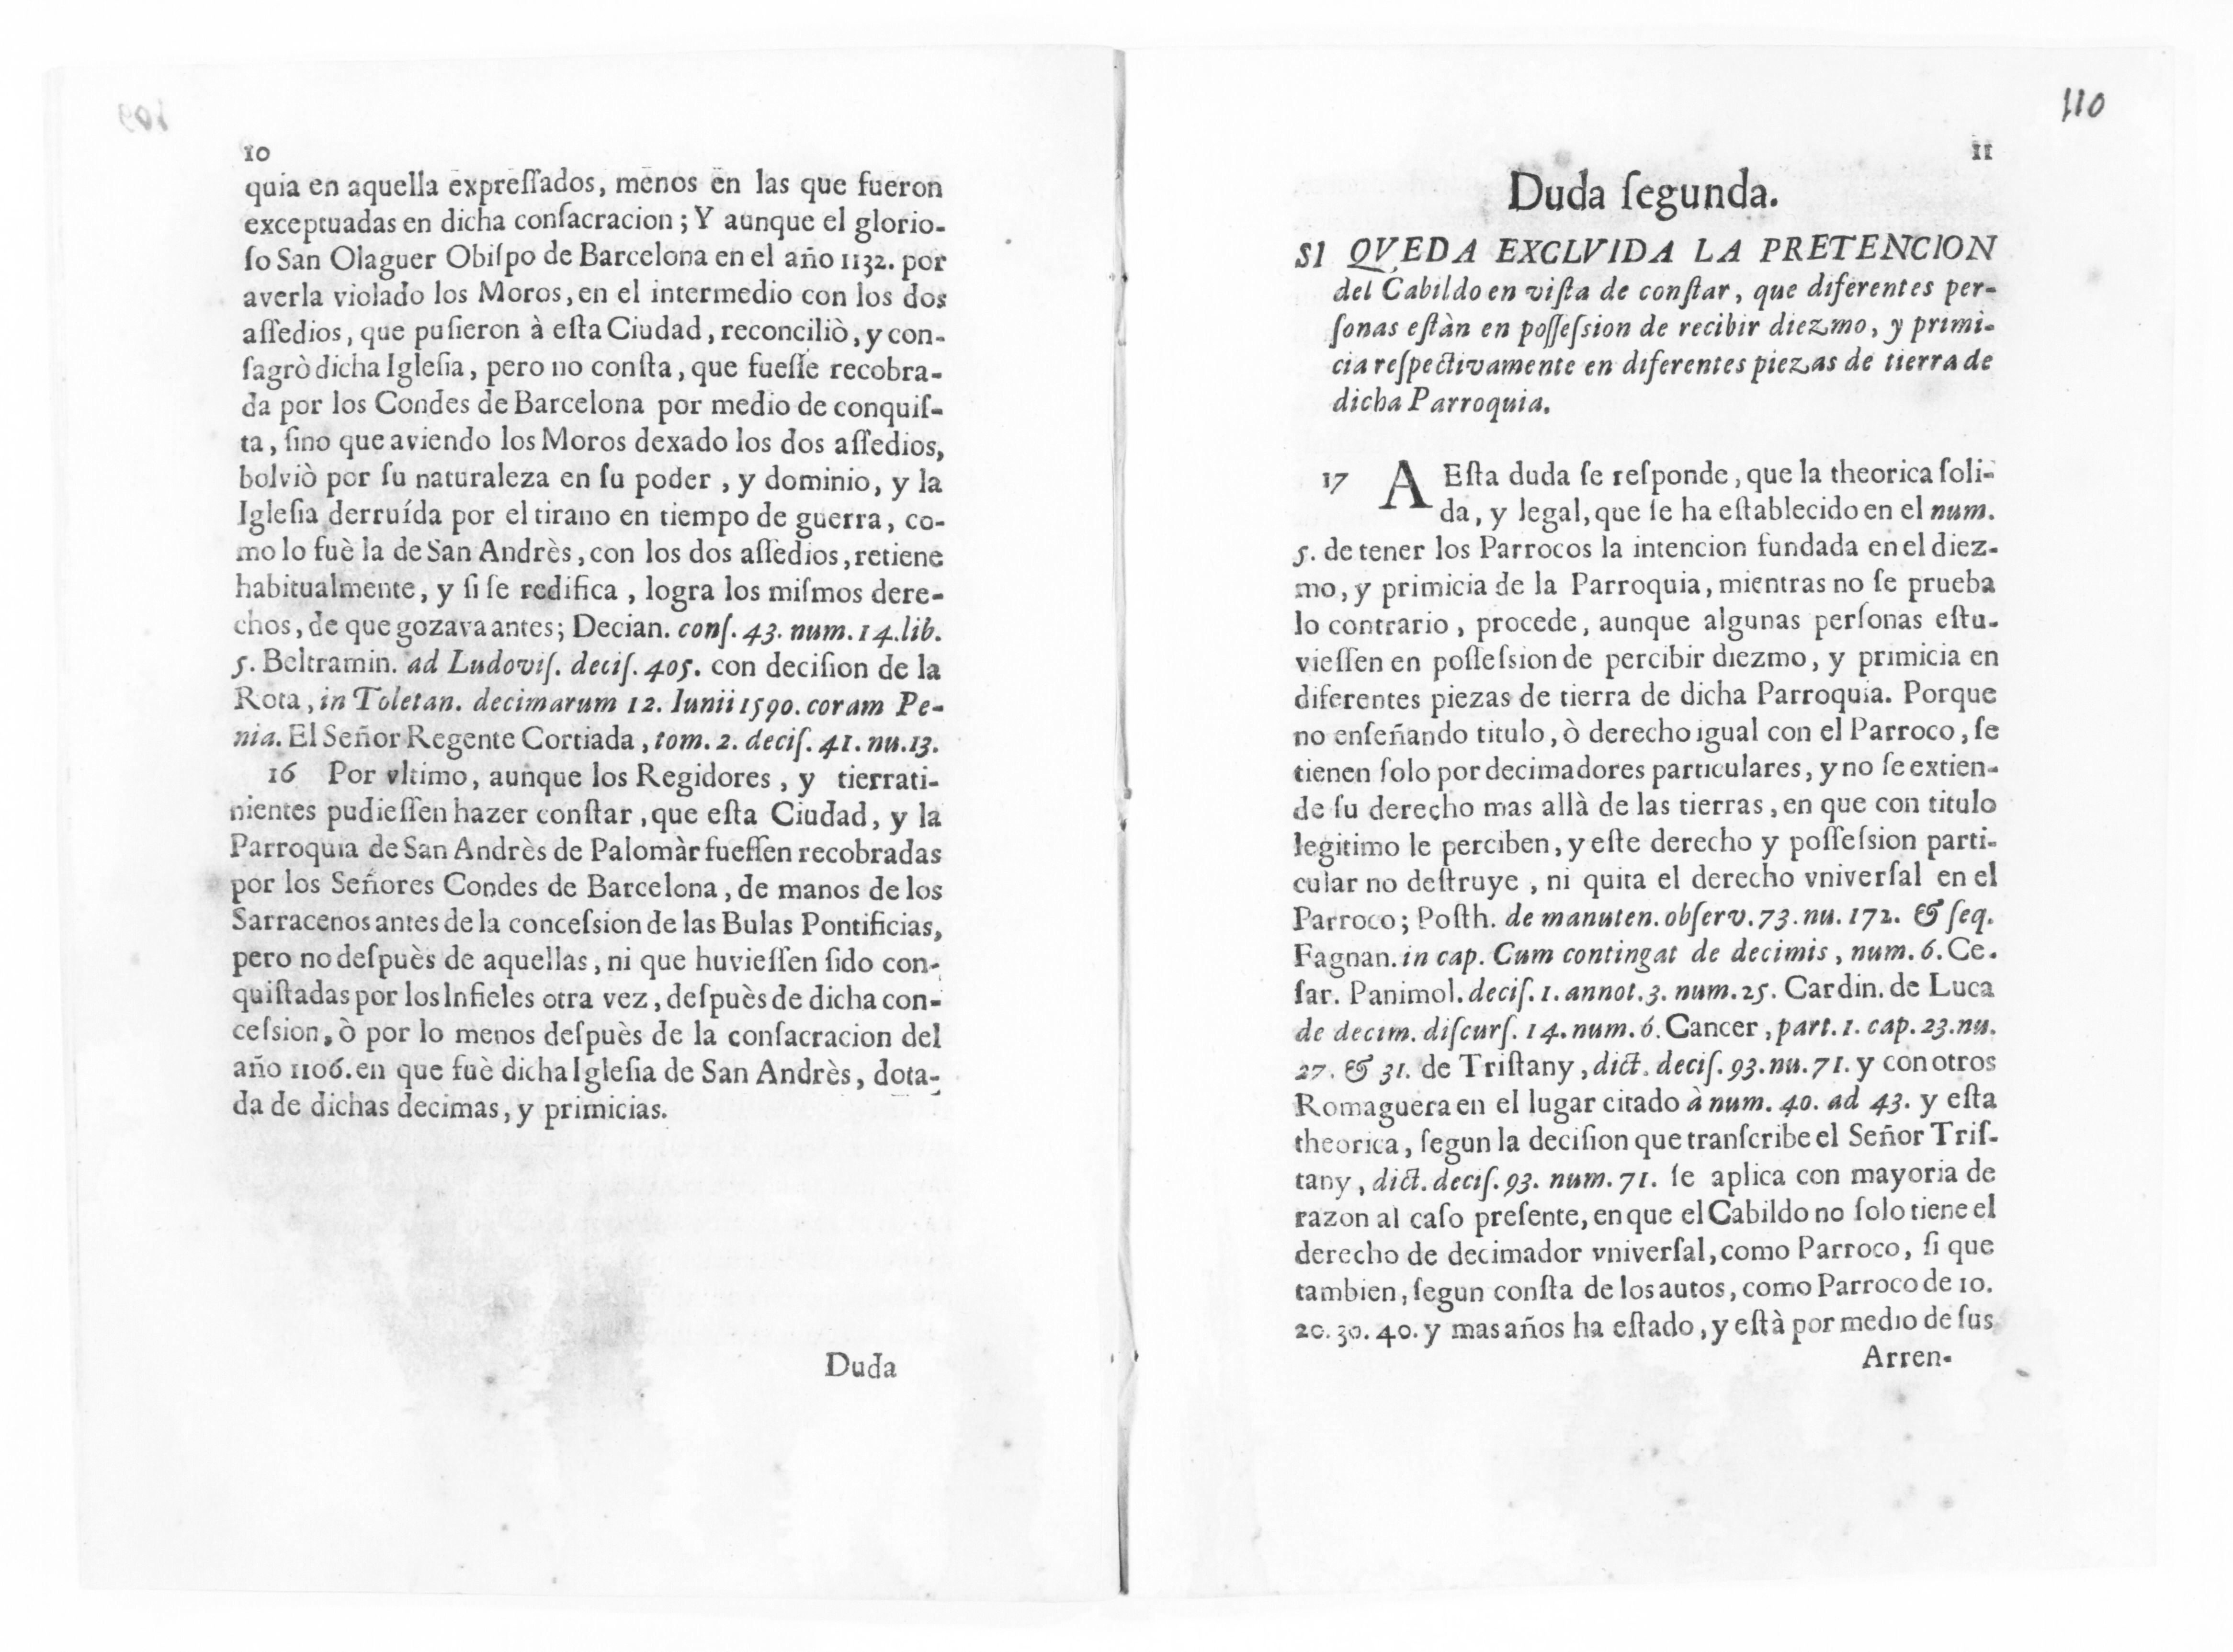 10
quia en aquella expreſſados, menos en las que fueron
exceptuadas en dicha conſacracion; Y aunque el glorio-
ſo San Olaguer Obiſpo de Barcelona en el año 1132. por
averla violado los Moros, en el intermedio con los dos
aſſedios, que puſieron à eſta Ciudad, reconciliò, y con-
ſagrò dicha Igleſia, pero no conſta, que fueſſe recobra-
da por los Condes de Barcelona por medio de conquiſ-
ta, ſino que aviendo los Moros dexado los dos aſſedios,
bolviò por ſu naturaleza en ſu poder, y dominio, y la
Igleſia derruída por el tirano en tiempo de guerra, co-
mo lo fuè la de San Andrès, con los dos aſſedios, retiene
habitualmente, y ſi ſe redifica, logra los miſmos dere-
chos, de que gozava antes; Decian. conſ. 43. num. 14. lib.
5. Beltramin. ad Ludoviſ. deciſ. 405. con deciſion de la
Rota, in Toletan. decimarum 12. Iunii 1590. coram Pe-
nia. El Señor Regente Cortiada, tom. 2. deciſ. 41. nu. 13.
16 Por vltimo, aunque los Regidores, y tierrati-
nientes pudieſſen hazer conſtar, que eſta Ciudad, y la
Parroquia de San Andrès de Palomàr fueſſen recobradas
por los Señores Condes de Barcelona, de manos de los
Sarracenos antes de la conceſsion de las Bulas Pontificias,
pero no deſpuès de aquellas, ni que huvieſſen ſido con-
quiſtadas por los Infieles otra vez, deſpuès de dicha con-
ceſsion, ò por lo menos deſpuès de la conſacracion del
año 1106. en que fuè dicha Igleſia de San Andrès, dota-
da de dichas decimas, y primicias.
Duda
110
11
Duda ſegunda.
SI QVEDA EXCLVIDA LA PRETENCION
del Cabildo en viſta de conſtar, que diferentes per-
ſonas eſtàn en poſſeſsion de recibir diezmo, y primi-
cia reſpectivamente en diferentes piezas de tierra de
dicha Parroquia.
17 A Eſta duda ſe reſponde, que la theorica ſoli-
da, y legal, que ſe ha eſtablecido en el num.
5. de tener los Parrocos la intencion fundada en el diez-
mo, y primicia de la Parroquia, mientras no ſe prueba
lo contrario, procede, aunque algunas perſonas eſtu-
vieſſen en poſſeſsion de percibir diezmo, y primicia en
diferentes piezas de tierra de dicha Parroquia. Porque
no enſeñando titulo, ò derecho igual con el Parroco, ſe
tienen ſolo por decimadores particulares, y no ſe extien-
de ſu derecho mas allà de las tierras, en que con titulo
legitimo le perciben, y eſte derecho y poſſeſsion parti-
cular no deſtruye, ni quita el derecho vniverſal en el
Parroco; Poſth. de manuten. obſerv. 73. nu. 172. & ſeq.
Fagnan. in cap. Cum contingat de decimis, num. 6. Ce-
ſar. Panimol. deciſ. 1. annot. 3. num. 25. Cardin. de Luca
de decim. diſcurſ. 14. num. 6. Cancer, part. 1. cap. 23. nu.
27. & 31. de Triſtany, dict. deciſ. 93. nu. 71. y con otros
Romaguera en el lugar citado à num. 40. ad 43. y eſta
theorica, ſegun la deciſion que tranſcribe el Señor Triſ-
tany, dict. deciſ. 93. num. 71. ſe aplica con mayoria de
razon al caſo preſente, en que el Cabildo no ſolo tiene el
derecho de decimador vniverſal, como Parroco, ſi que
tambien, ſegun conſta de los autos, como Parroco de 10.
20. 30. 40. y mas años ha eſtado, y eſtà por medio de ſus
Arren-